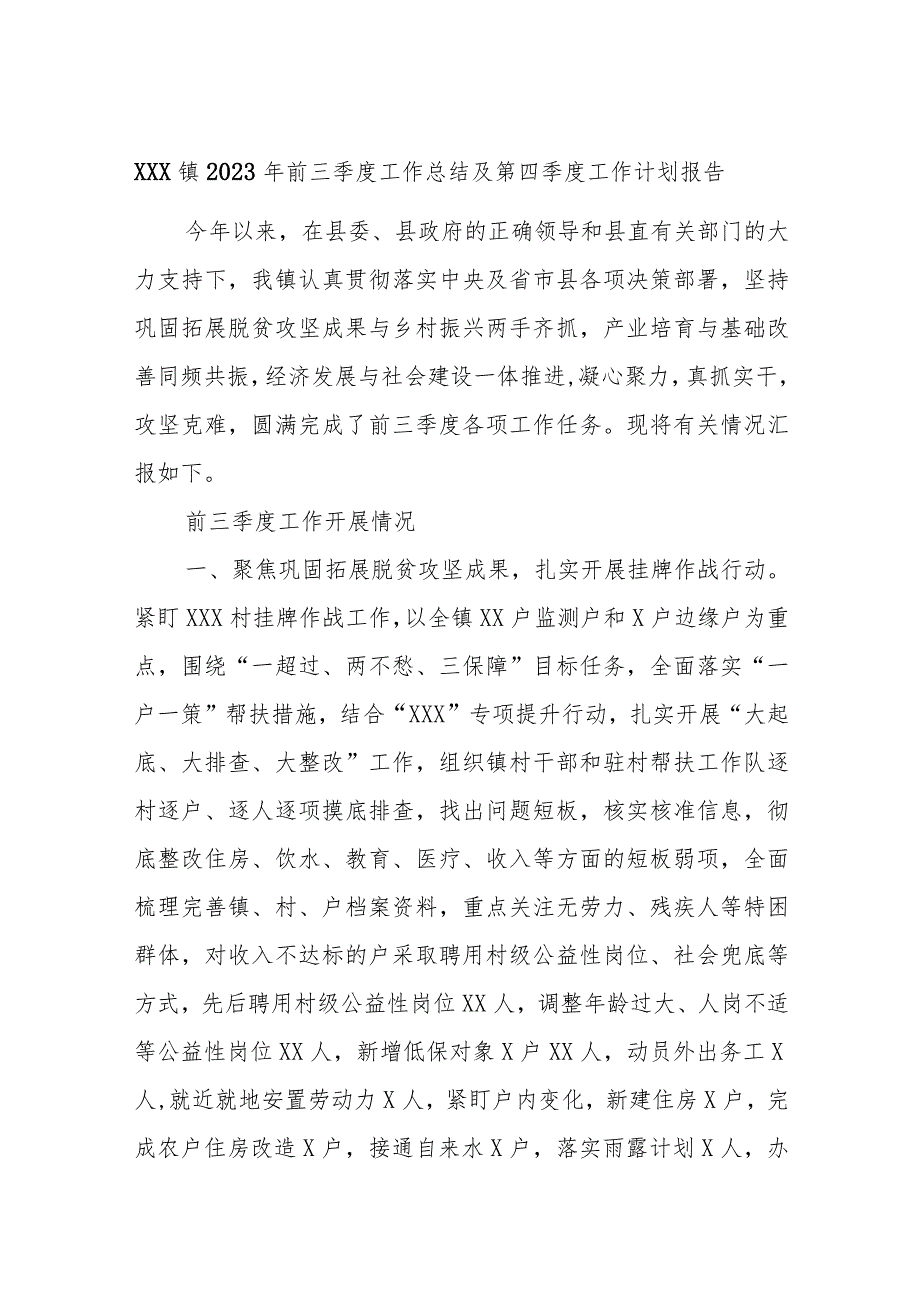 XXX 镇 2023 年前三季度工作总结及第四季度工作计划报告
今年以来，在县委、县政府的正确领导和县直有关部门的大
力支持下，我镇认真贯彻落实中央及省市县各项决策部署，坚持
巩固拓展脱贫攻坚成果与乡村振兴两手齐抓，产业培育与基础改
善同频共振,经济发展与社会建设一体推进,凝心聚力,真抓实干,
攻坚克难，圆满完成了前三季度各项工作任务。现将有关情况汇
报如下。
前三季度工作开展情况
一、聚焦巩固拓展脱贫攻坚成果，扎实开展挂牌作战行动。
紧盯 XXX 村挂牌作战工作,以全镇 XX 户监测户和 X 户边缘户为重
点，围绕“一超过、两不愁、三保障”目标任务，全面落实“一
户一策”帮扶措施，结合“XXX”专项提升行动，扎实开展“大起
底、大排查、大整改”工作，组织镇村干部和驻村帮扶工作队逐
村逐户、逐人逐项摸底排查，找出问题短板，核实核准信息，彻
底整改住房、饮水、教育、医疗、收入等方面的短板弱项，全面
梳理完善镇、村、户档案资料，重点关注无劳力、残疾人等特困
群体，对收入不达标的户采取聘用村级公益性岗位、社会兜底等
方式，先后聘用村级公益性岗位 XX 人，调整年龄过大、人岗不适
等公益性岗位 XX 人，新增低保对象 X 户 XX 人，动员外出务工 X
人,就近就地安置劳动力 X 人，紧盯户内变化，新建住房 X 户，完
成农户住房改造 X 户，接通自来水 X 户，落实雨露计划 X 人，办